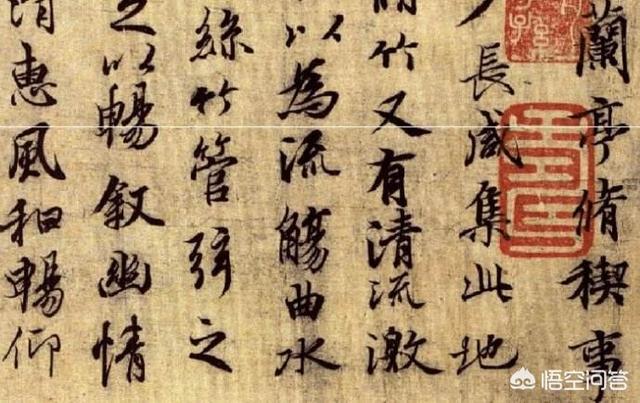 蘭亭脩稧事
長咸集此地
竹又有清流激
以為流觴曲水
絲竹管弦之
以暢叙幽情
清惠風和暢仰
悟空问答